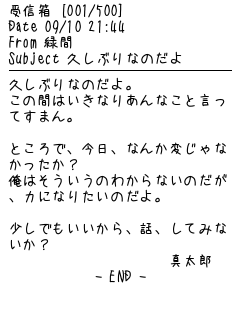 受信箱 [001/500]
Date 09/10 21:44
From 緑間
Subject 久しぶりなのだよ
久しぶりなのだよ。
この間はいきなりあんなこと言っ
てすまん。
ところで、今日、なんか変じゃな
かったか？
俺はそういうのわからないのだが
、力になりたいのだよ。
少しでもいいから、話、してみな
いか？
真太郎
- END -